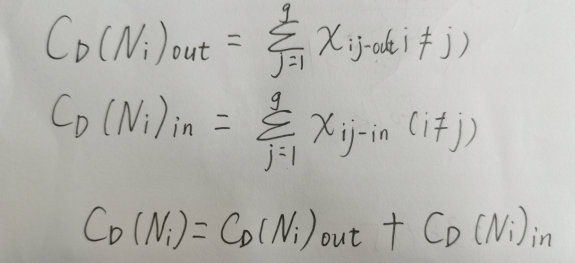 C_D(N_i)_out = Σ_{j=1}^{g} x_{ij-out} i ≠ j)
C_D(N_i)_in = Σ_{j=1}^{g} x_{ij-in} (i≠j)
C_D(N_i) = C_D(N_i)_out + C_D(N_i)_in